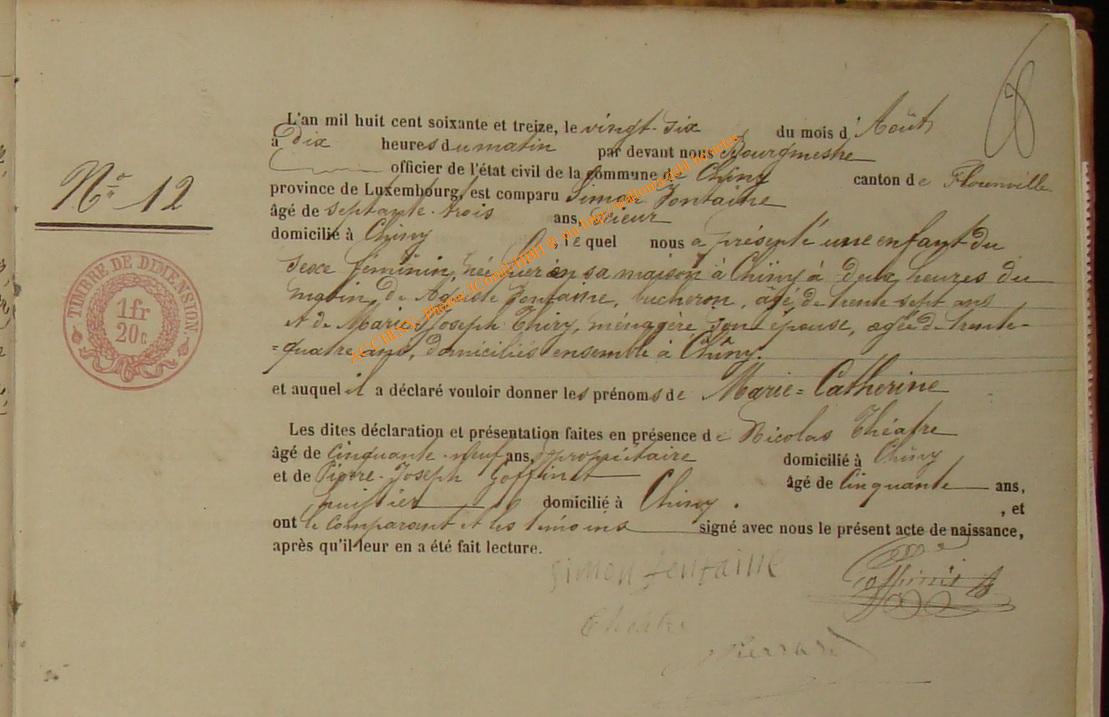 8
L'an mil huit cent soixante et treize, le vingt-six du mois d'Août
à Dix heures du matin par devant nous Bourgmestre
officier de l'état civil de la commune de Chiny canton de Florenville
province de Luxembourg, est comparu Simon Fontaine
âgé de septante-trois ans, scieur
domicilié à Chiny, lequel nous a présenté une enfant du
sexe féminin, née hier en sa maison à Chiny à deux heures du
matin, de Fontaine, bucheron, âgé de trente sept ans
et de Marie-Joseph Thiry, ménagère son épouse, agée de trente-
=quatre ans, domiciliés ensemble à Chiny.
et auquel il a déclaré vouloir donner les prénoms de Marie=Catherine
Les dites déclaration et présentation faites en présence de Nicolas Théatre
âgé de cinquante-neuf ans, propriétaire domicilié à Chiny
et de Pierre-Joseph Goffinet âgé de Cinquante ans,
huissier domicilié à Chiny. , et
ont le comparant et les témoins signé avec nous le présent acte de naissance,
après qu'il leur en a été fait lecture.
Simon fontaine
Théatre
Pierrard
N° 12
TIMBRE DE DIMENSION
1fr
20c